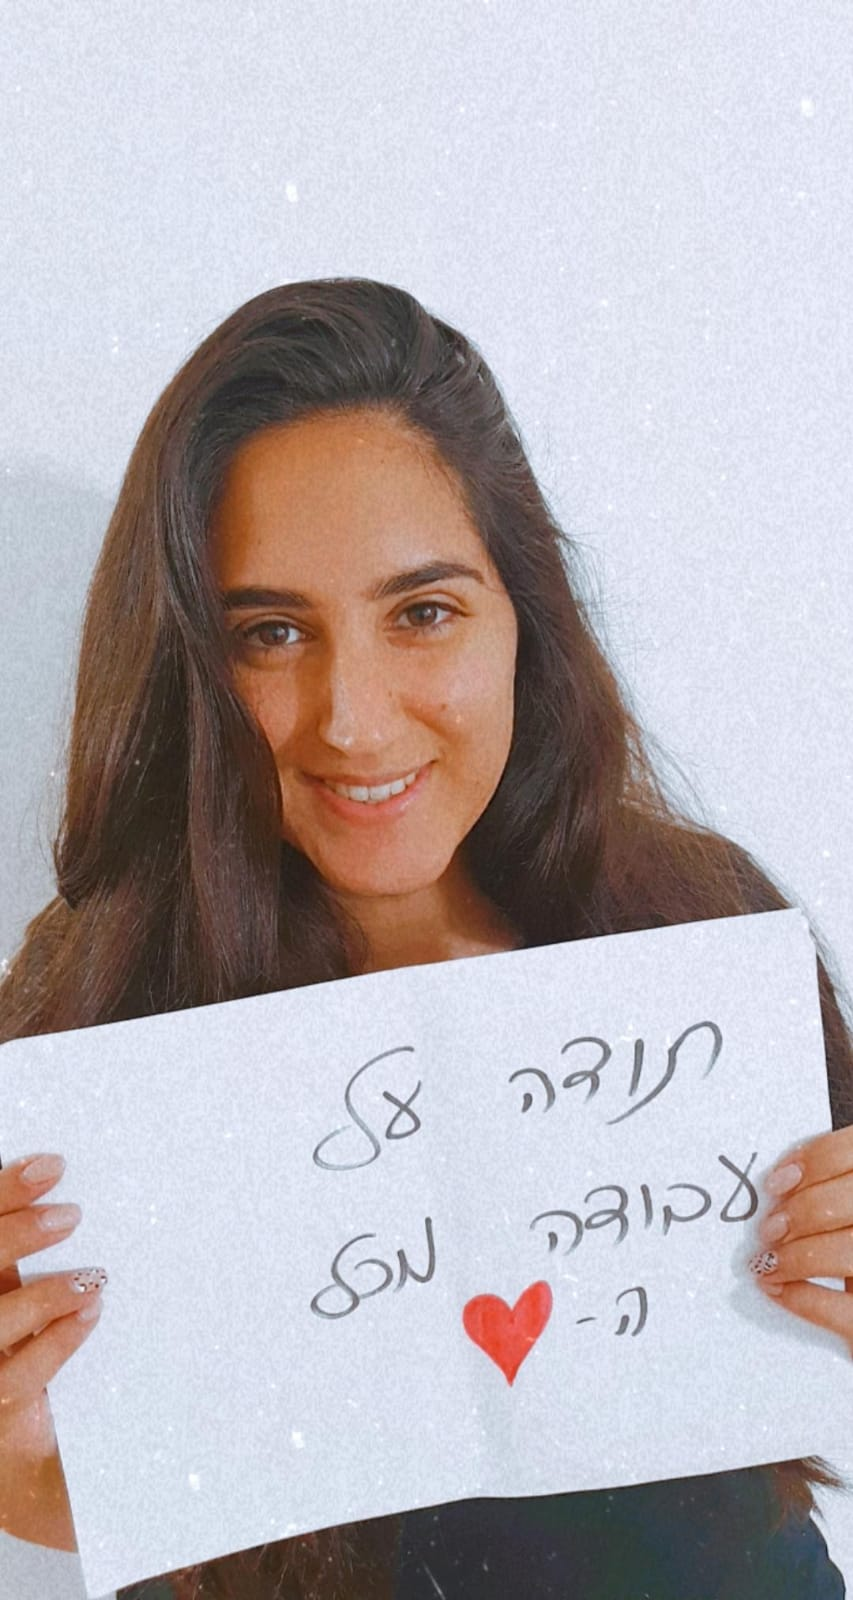 תודה על
עבודה מכל
ה-❤️